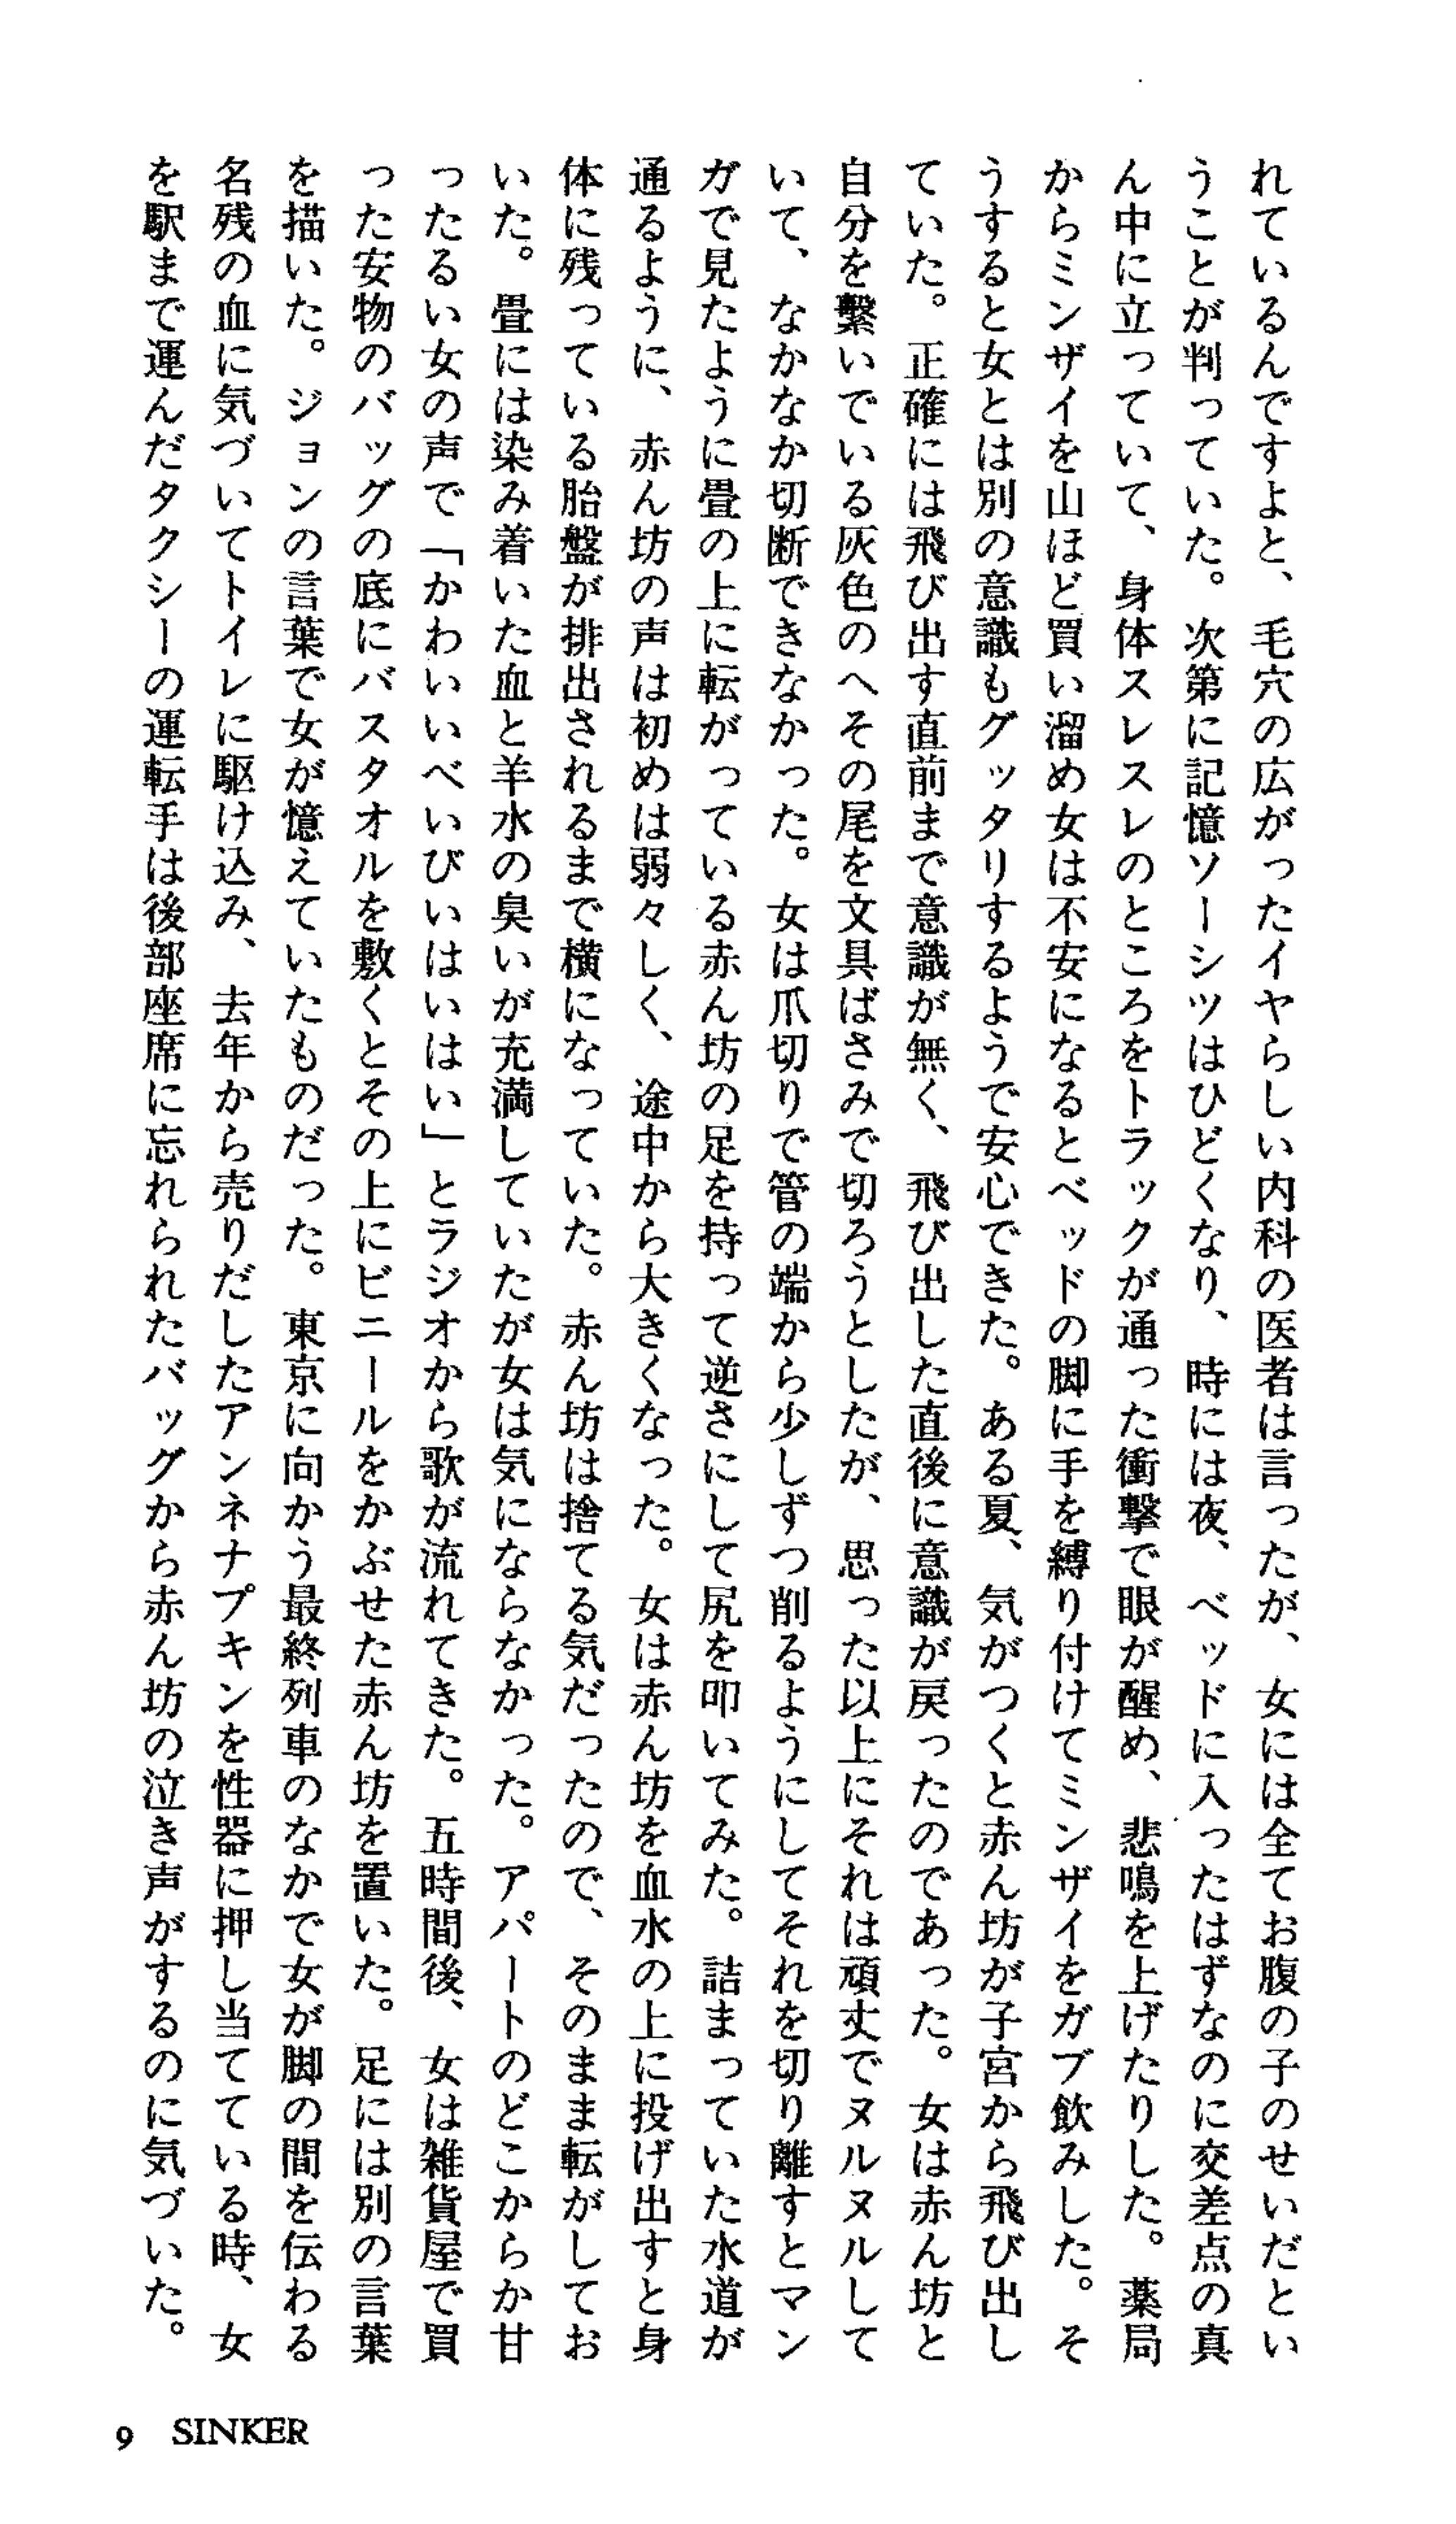 れているんですよと、毛穴の広がったイヤらしい内科の医者は言ったが、女には全てお腹の子のせいだとい
うことが判っていた。次第に記憶ソーシツはひどくなり、時には夜、ベッドに入ったはずなのに交差点の真
ん中に立っていて、身体スレスレのところをトラックが通った衝撃で眼が醒め、悲鳴を上げたりした。薬局
からミンザイを山ほど買い溜め女は不安になるとベッドの脚に手を縛り付けてミンザイをガブ飲みした。そ
うすると女とは別の意識もグッタリするようで安心できた。ある夏、気がつくと赤ん坊が子宮から飛び出し
ていた。正確には飛び出す直前まで意識が無く、飛び出した直後に意識が戻ったのであった。女は赤ん坊と
自分を繋いでいる灰色のへその尾を文具ばさみで切ろうとしたが、思った以上にそれは頑丈でヌルヌルして
いて、なかなか切断できなかった。女は爪切りで管の端から少しずつ削るようにしてそれを切り離すとマン
ガで見たように畳の上に転がっている赤ん坊の足を持って逆さにして尻を叩いてみた。詰まっていた水道が
通るように、赤ん坊の声は初めは弱々しく、途中から大きくなった。女は赤ん坊を血水の上に投げ出すと身
体に残っている胎盤が排出されるまで横になっていた。赤ん坊は捨てる気だったので、そのまま転がしてお
いた。畳には染み着いた血と羊水の臭いが充満していたが女は気にならなかった。アパートのどこからか甘
ったるい女の声で「かわいいべいびいはいはい」とラジオから歌が流れてきた。五時間後、女は雑貨屋で買
った安物のバッグの底にバスタオルを敷くとその上にビニールをかぶせた赤ん坊を置いた。足には別の言葉
を描いた。ジョンの言葉で女が憶えていたものだった。東京に向かう最終列車のなかで女が脚の間を伝わる
名残の血に気づいてトイレに駆け込み、去年から売りだしたアンネナプキンを性器に押し当てている時、女
を駅まで運んだタクシーの運転手は後部座席に忘れられたバッグから赤ん坊の泣き声がするのに気づいた。
9 SINKER